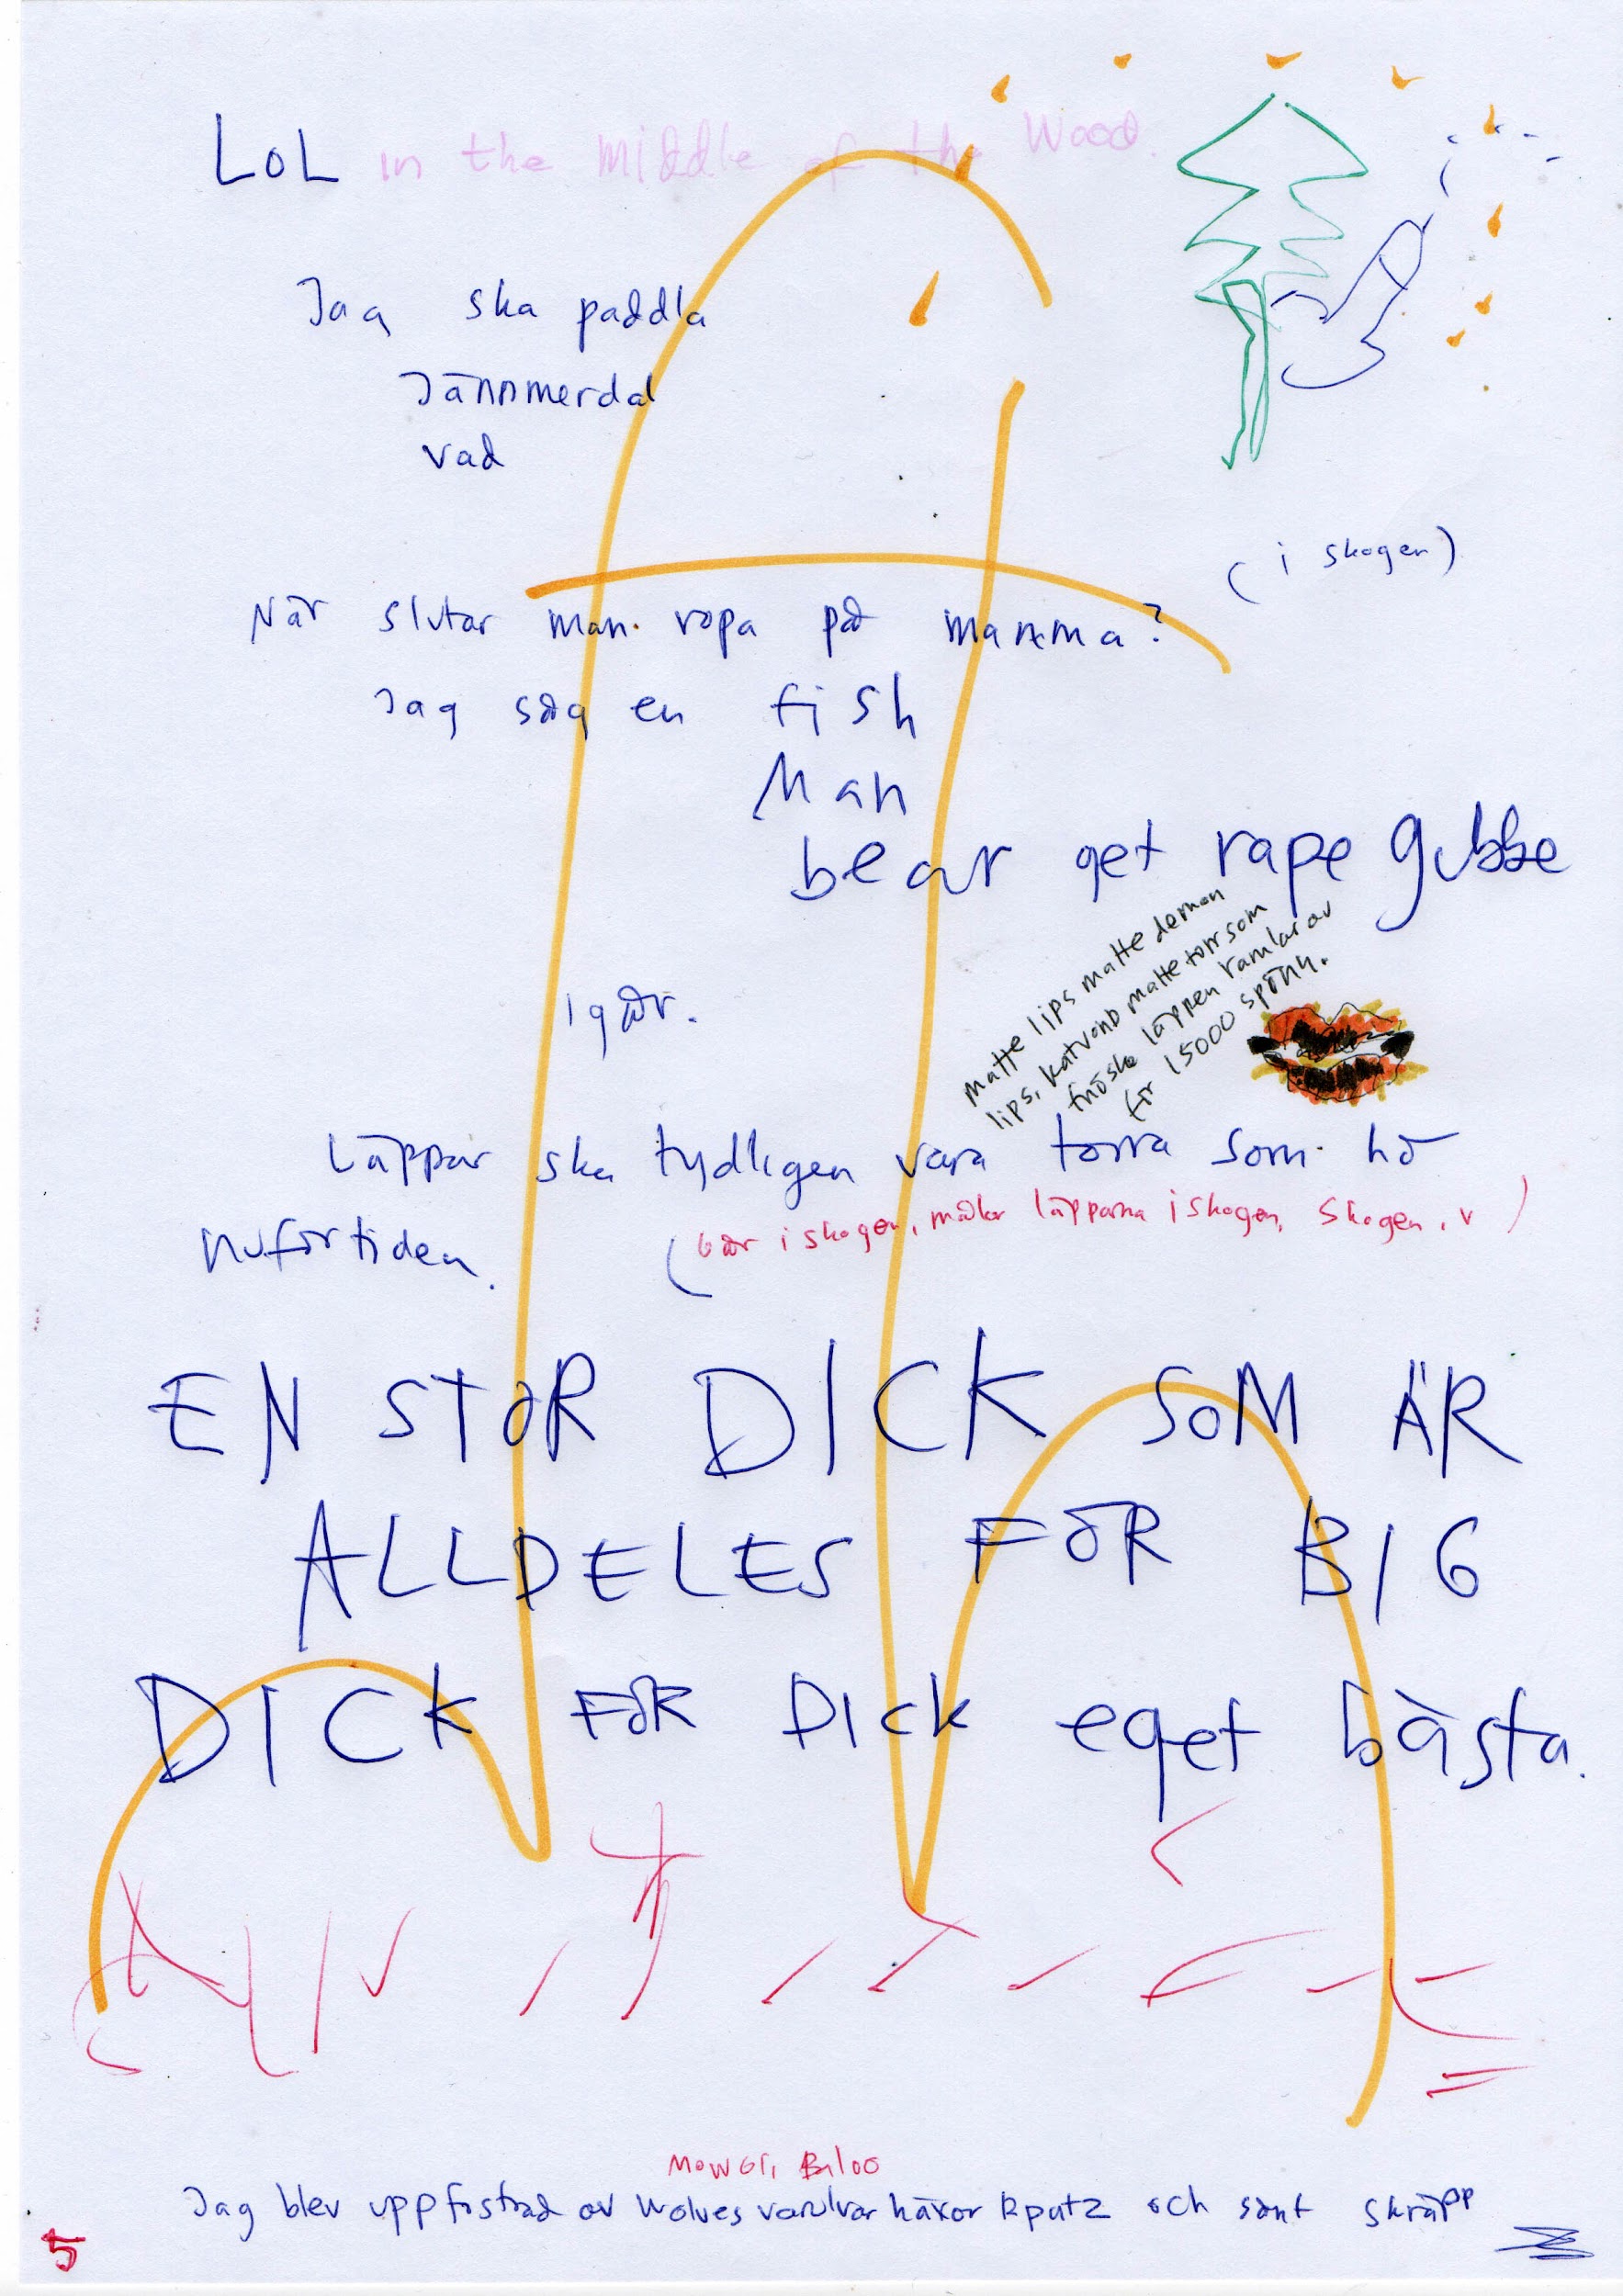 LOL in the middle of the Wood.
Jag ska paddla
Jämmerdal
vad
(i skogen)
När slutar man ropa på mamma?
Jag såg en fish
Man
bear get rape gubbe
igår.
matte lips matte demon
lips, katvond matte torr som
fnöske läppen ramlar av
för 15000 spänn.
Läppar ska tydligen vara torra som hö
nuförtiden. (bär i skogen, målar läpparna i skogen, skogen, v)
EN STOR DICK SOM ÄR
ALLDELES FÖR BIG
DICK FÖR DICK eget bästa.
MOWGLI, Baloo
Jag blev uppfostrad av wolves varulvar häxor & putz och sånt skräpp
5